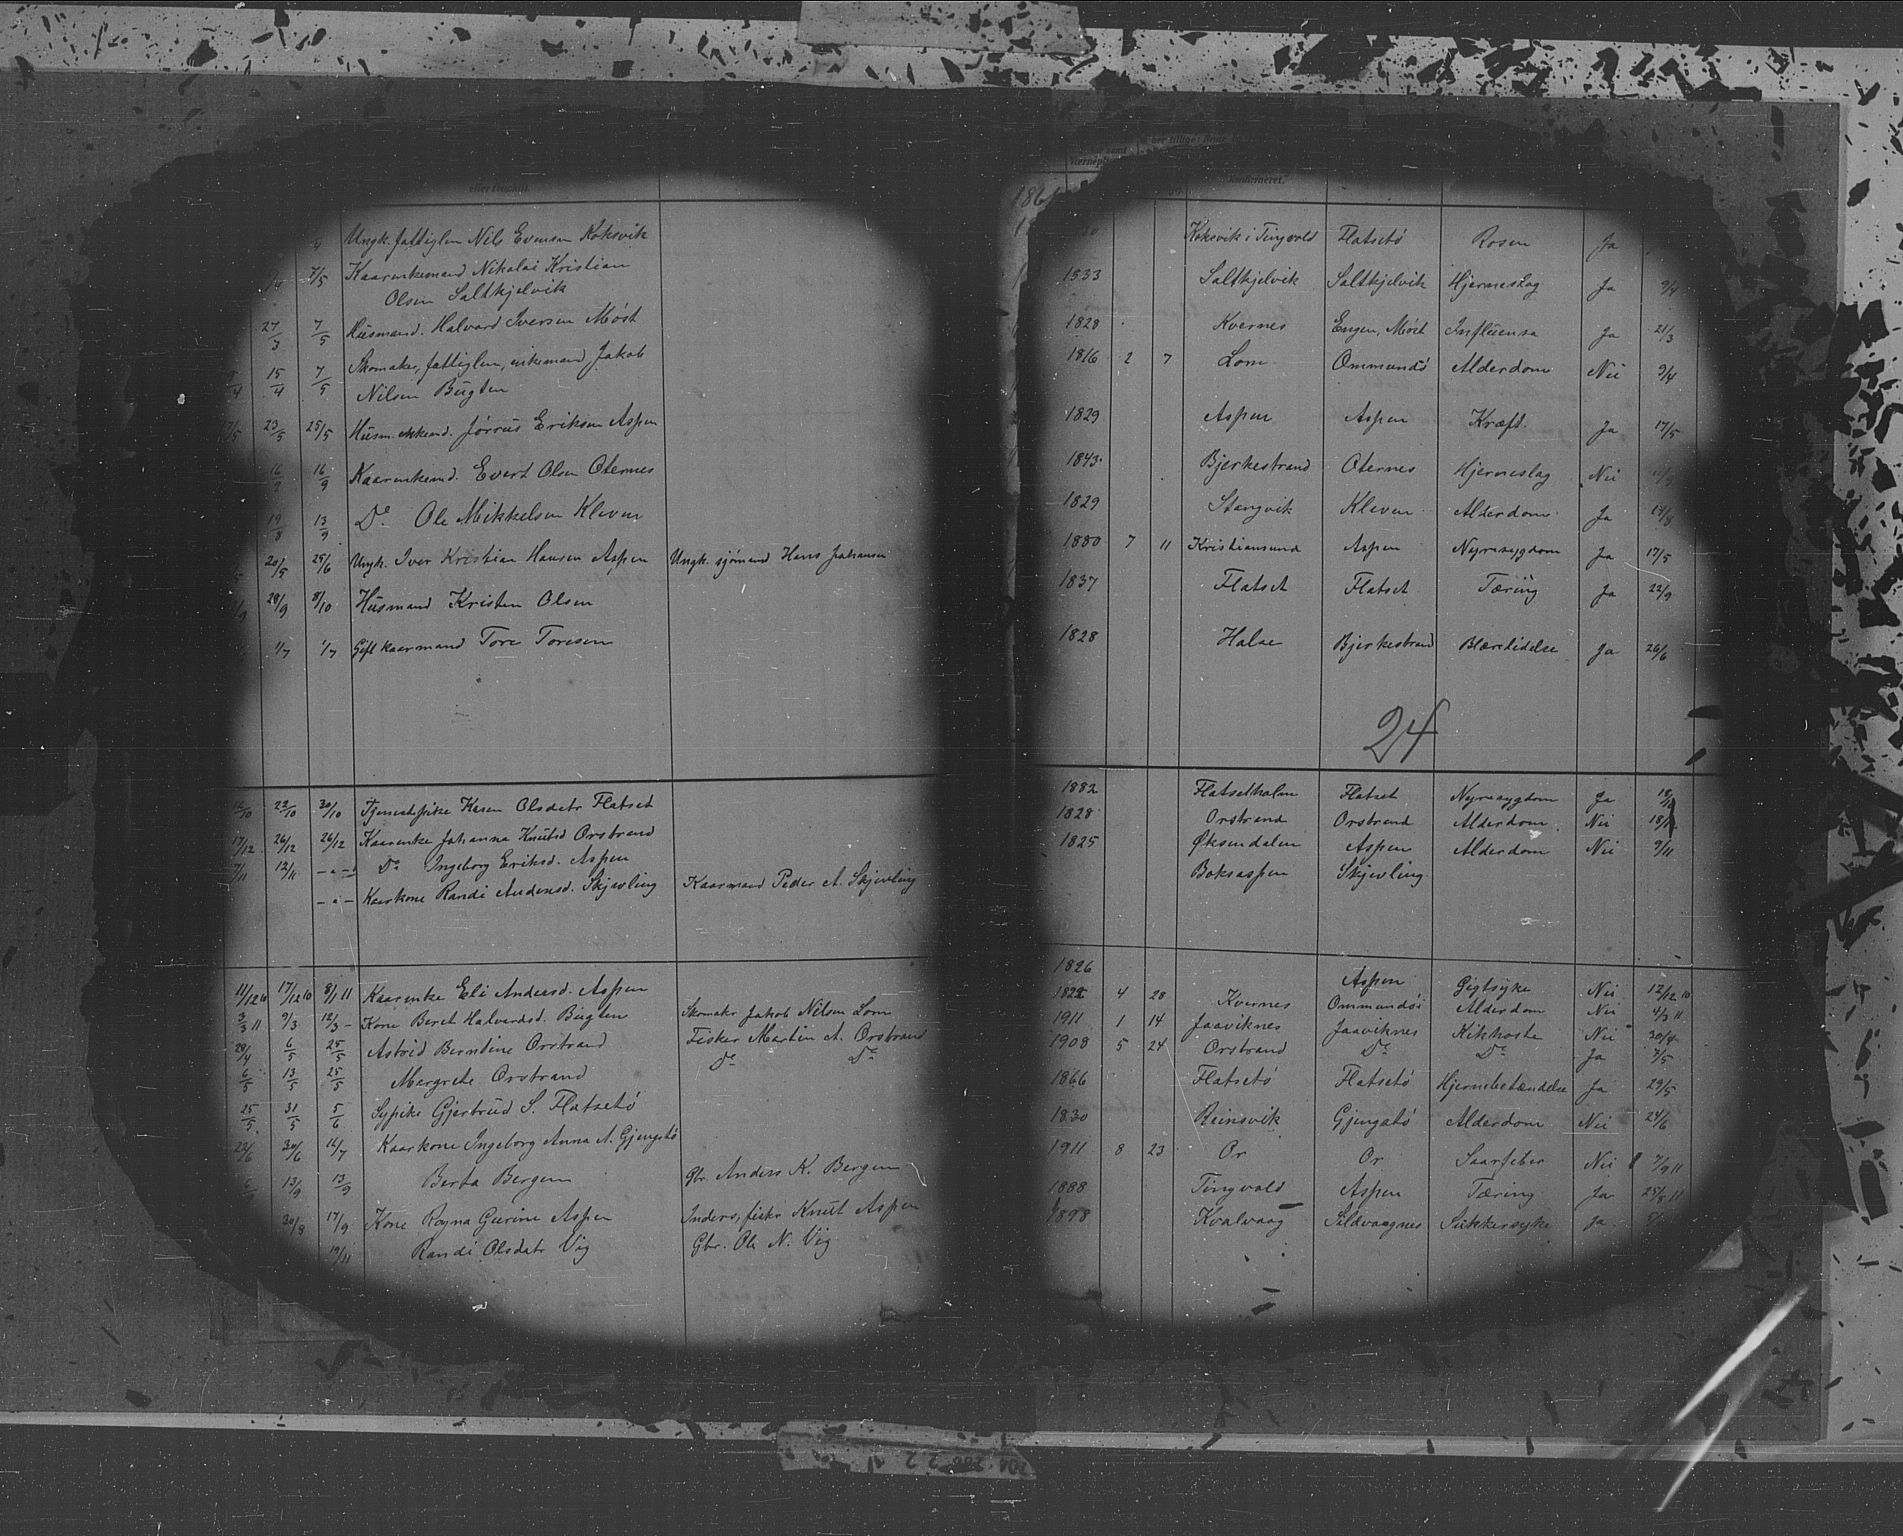 eller fraskilt.
Ungk. fattiglem Nils Evensen Koksvik
7/5 Kaarenkemand Nikolai Kristian
Olsen Saltkjelvik
27/3 7/5 Husmand. Halvard Iversen Møst
Skomaker, fattiglem, enkemand, Jakob
15/4 7/5 Nilsen Bugten
23/5 25/5 Husm. enkemd. Jørrus Eriksen Aspen
16/9 16/9 Kaarenkemd. Evert Olsen Oternes
19/8 13/9 Do Ole Mikkelsen Kleven
20/5 25/6 Ungk. Iver Kristian Hansen Aspen Ungk. sjømand Hans Johansen
28/9 8/10 Husmand Kristen Olsen
1/7 1/7 Gift kaarmand Tore Toresen
22/10 30/10 Tjenestepike Karen Olsdatr Flatset
17/12 26/12 26/12 Kaarenke Johanna Knutsd Orstrand
7/11 12/11 -"- Do Ingeborg Eriksd. Aspen
-"- Kaarkone Randi Andersd. Skjevling Kaarmand Peder A. Skjevling
11/12 10 17/12 10 8/1 11 Kaarenke Eli Andersd. Aspen
3/3 11 9/3 12/3 - Kone Beret Halvardsd. Bugten Skomakr Jakob Nilsen Lom
28/4 6/5 25/5 Astrid Berntine Orstrand Fisker Martin A. Orstrand
6/5 13/5 25/5 Margrete Orstrand Do Do
25/5 31/5 5/6 Sypike Gjertrud S. Flatsetö
22/6 30/6 16/7 Kaarkone Ingeborg Anna A. Gjengstö
13/9 13/9 Berta Bergem Gbr. Anders K. Bergem
30/8 17/9 Kone Ragna Gurine Aspen Inders, fiskr Knut Aspen
19/11 Randi Olsdatr Vig Gbr. Ole N. Vig
Koksvik i Tingvold Flatsetö Rosen Ja
1833 Saltkjelvik Saltkjelvik Hjerneslag Ja 9/4
1828 Kvernes Engen, Møst Influensa Ja 21/3
1816 2 7 Lom Ommundö Alderdom Nei 9/4
1829 Aspen Aspen Kræft. Ja 17/5
1843 Bjerkestrand Oternes Hjerneslag Nei
1829 Stangvik Kleven Alderdom Ja 14/8
1880 7 11 Kristiansund Aspen Nyresygdom Ja 17/5
1837 Flatset Flatset Tæring Ja 22/9
1828 Halse Bjerkestrand Blærelidelse Ja 26/6
24
1882 Flatsetholm Flatset Nyresygdom Ja
1828 Orstrand Orstrand Alderdom Nei
1825 Øksendalen Aspen Alderdom Nei 9/11
Boksaspen Skjevling
1826 Aspen Gigtsyke Nei 12/12 10
1822 4 28 Kvernes Ommundöi Alderdom Nei 4/3 11
1911 1 14 Jaaviknes Jaaviknes Kikhoste Nei 30/4
1908 5 24 Orstrand Do Do Ja 7/5
1866 Flatsetö Flatsetö Hjernebetændelse Ja 29/5
1830 Reinsvik Gjengstö Alderdom Nei 24/6
1911 8 23 Or Or Saarfeber Nei 7/9 11
1888 Tingvold Aspen Tæring Ja 25/8 11
1898 Kvalvaag Sildvaagnes Sukkersyke Ja